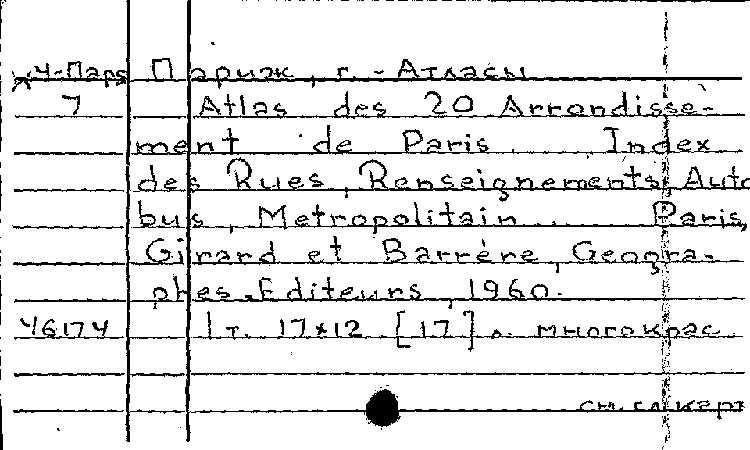 Ч-Пар Париж, г. - Атласы
7 Atlas des 20 Arrondisse-
ment de Paris Index
des Rues, Renseignements Auto
bus, Metropolitain ... Paris,
Girard et Barrère, Geogra-
phes-Editeurs, 1960.
46174 1 т. 17x12 [17] л. многокрас
см. сл. карт